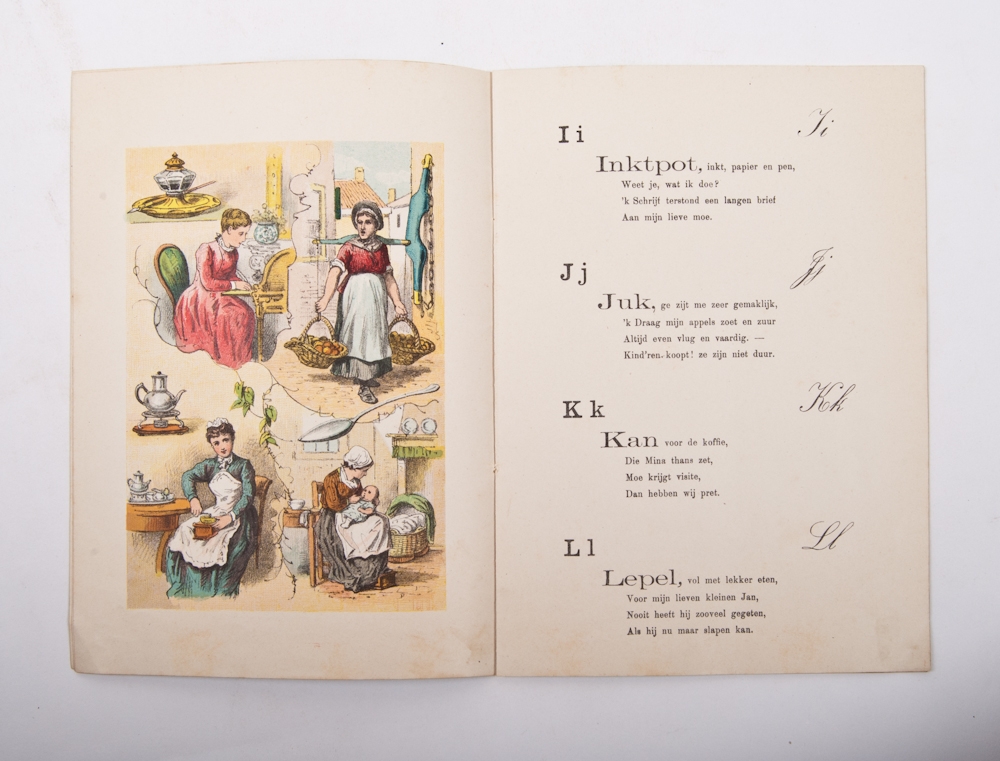 I i
Ii
Inktpot, inkt, papier en pen,
Weet je, wat ik doe?
'k Schrijf terstond een langen brief
Aan mijn lieve moe.
J j
Jj
Juk, ge zijt me zeer gemaklijk,
'k Draag mijn appels zoet en zuur
Altijd even vlug en vaardig. —
Kind'ren. koopt! ze zijn niet duur.
K k
Kk
Kan voor de koffie,
Die Mina thans zet,
Moe krijgt visite,
Dan hebben wij pret.
L l
Ll
Lepel, vol met lekker eten,
Voor mijn lieven kleinen Jan,
Nooit heeft hij zooveel gegeten,
Als hij nu maar slapen kan.